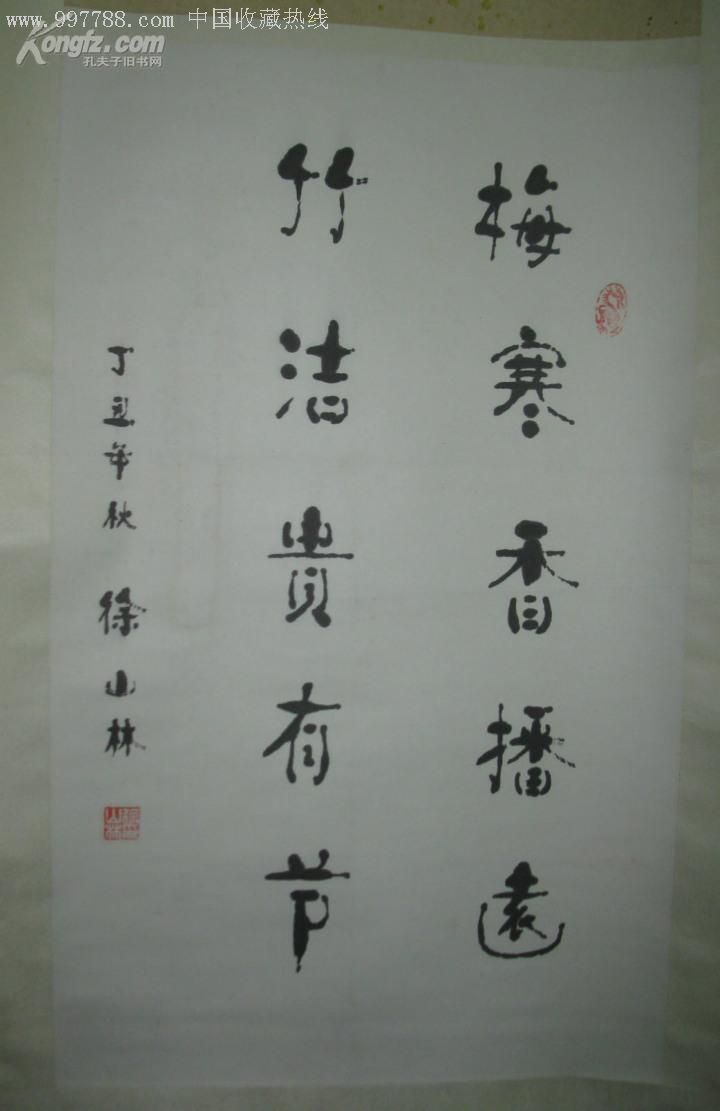 www.997788.com 中国收藏热线
Kongfz.com
孔夫子旧书网
梅寒香播遠
竹洁貴有节
丁丑年秋 徐山林